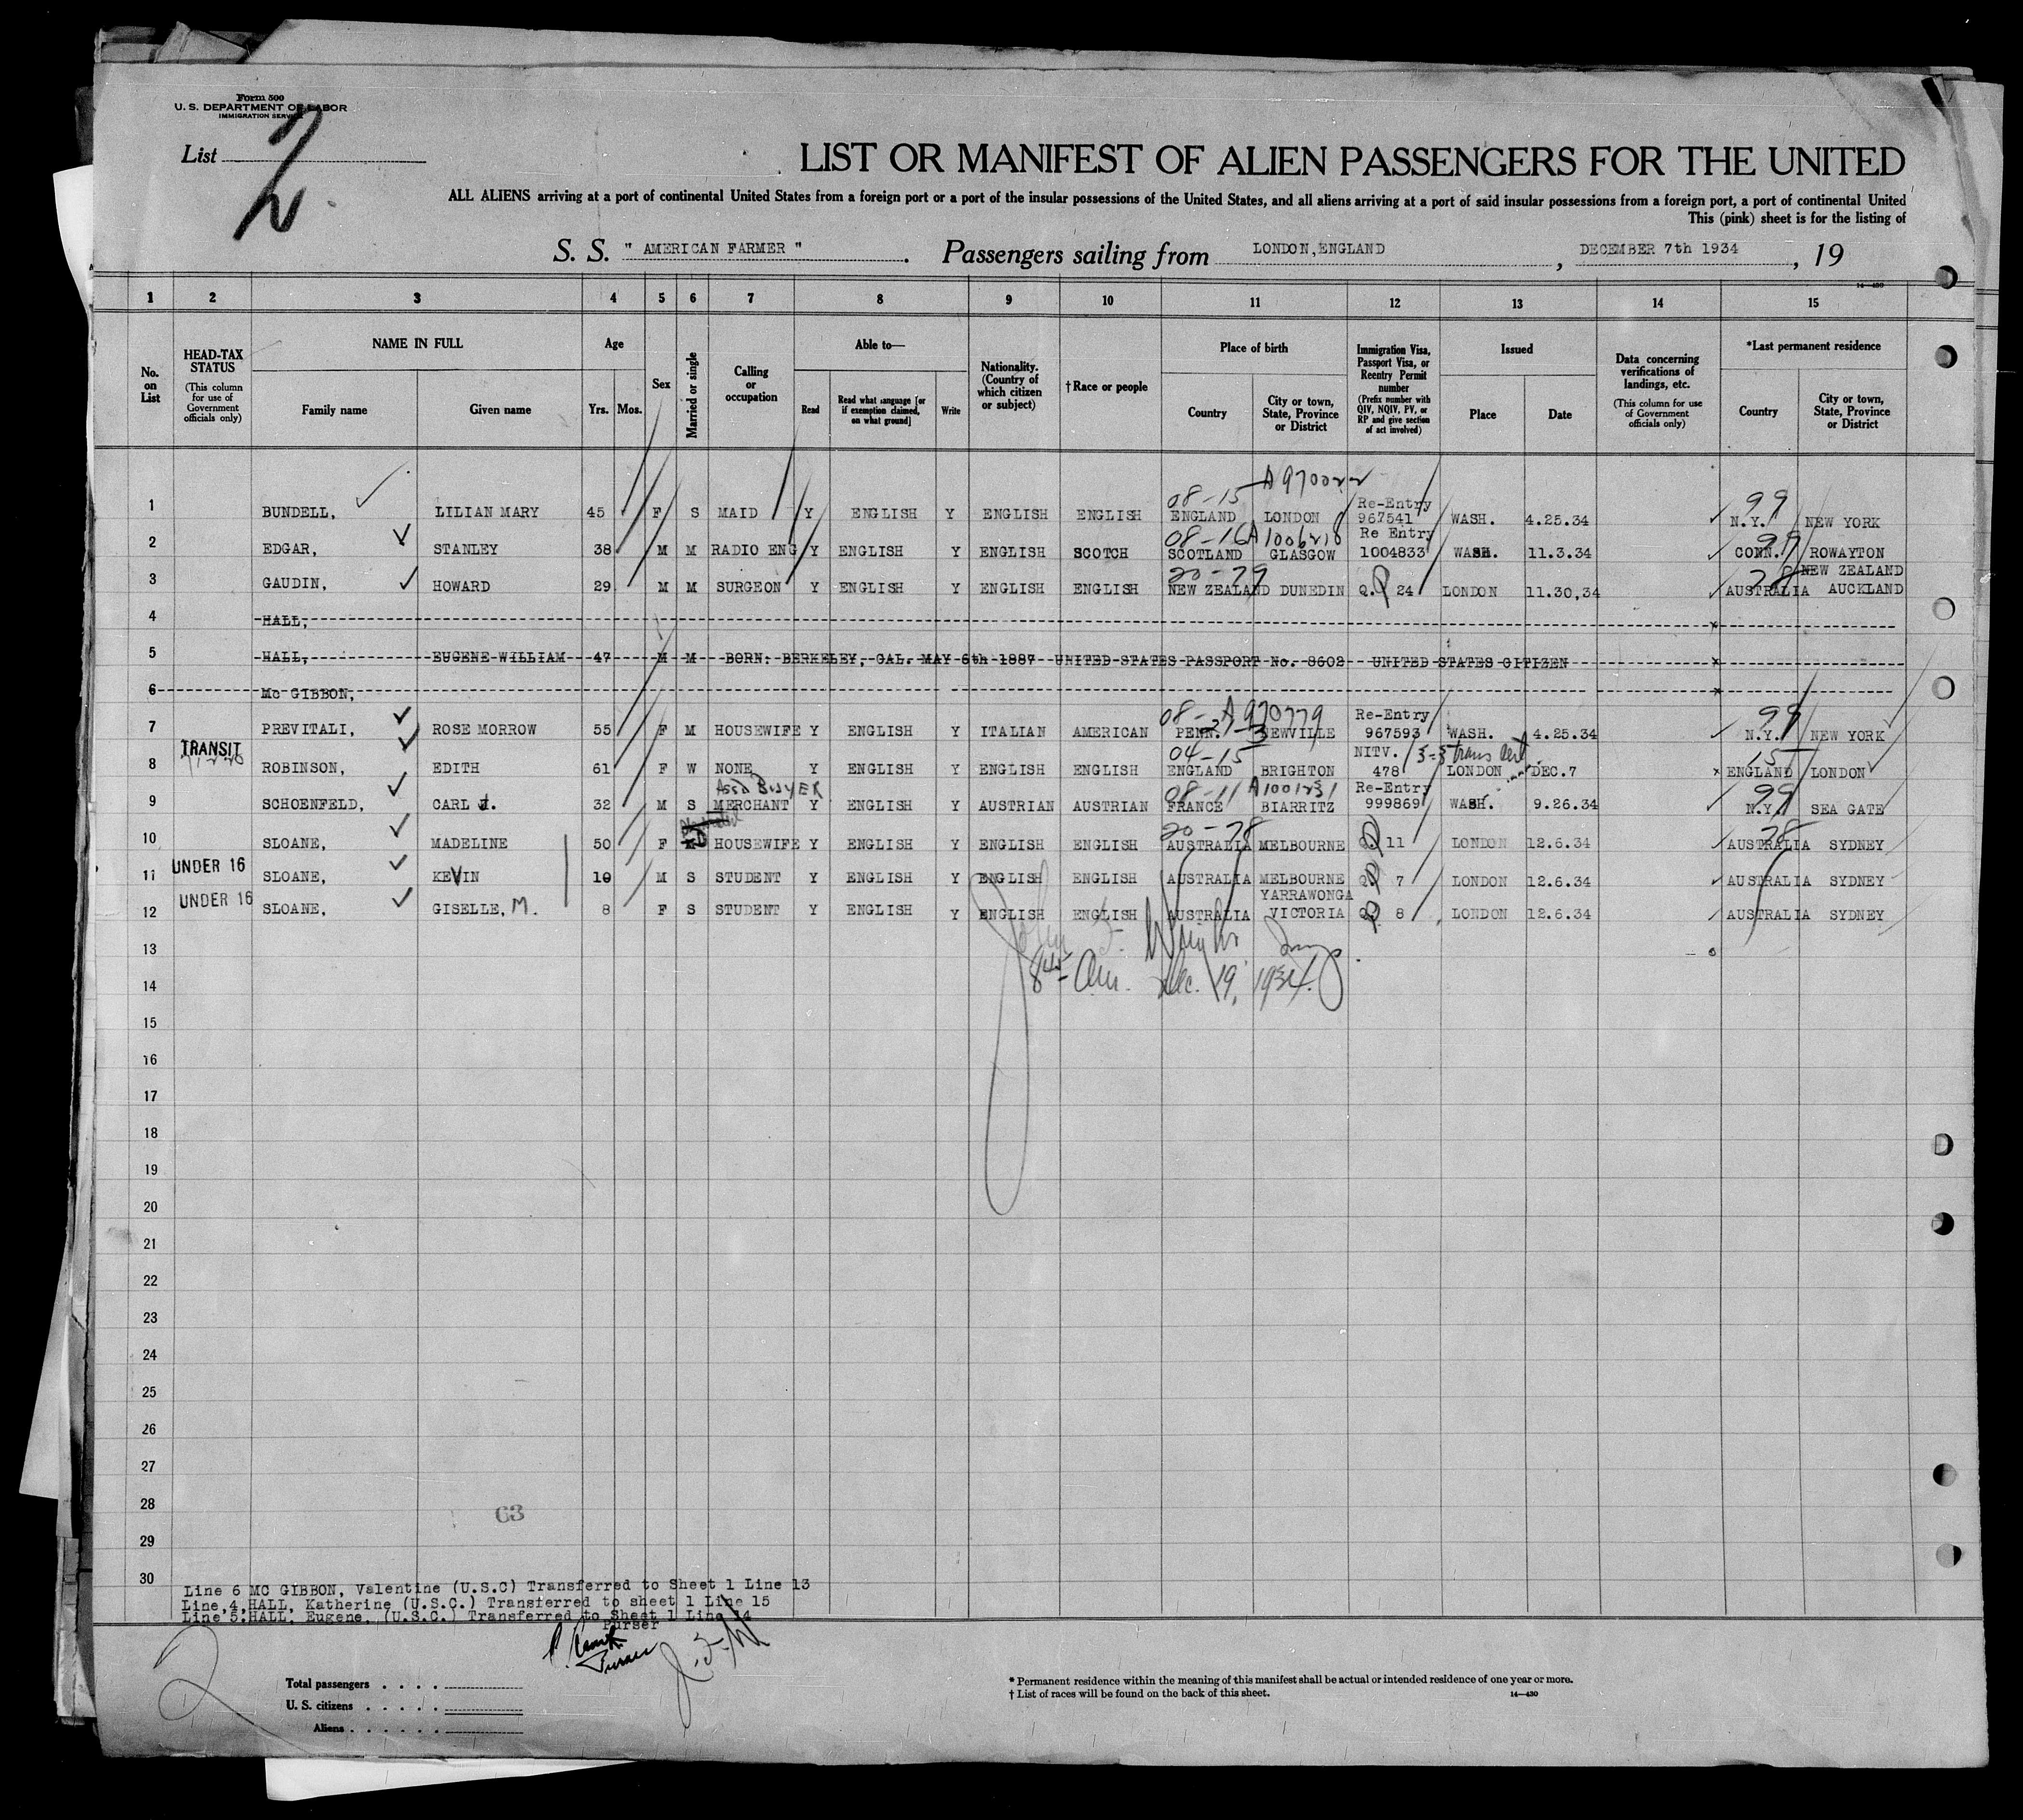 Form 500
U. S. DEPARTMENT OF LABOR
IMMIGRATION SERVICE
List 2
LIST OR MANIFEST OF ALIEN PASSENGERS FOR THE UNITED
ALL ALIENS arriving at a port of continental United States from a foreign port or a port of the insular possessions of the United States, and all aliens arriving at a port of said insular possessions from a foreign port, a port of continental United
This (pink) sheet is for the listing of
S. S. " AMERICAN FARMER " . Passengers sailing from LONDON, ENGLAND , DECEMBER 7th 1934 , 19
14—430
1 2 3 4 5 6 7 8 9 10 11 12 13 14 15
No. on List
HEAD-TAX STATUS (This column for use of Government officials only)
NAME IN FULL Family name Given name
Age Yrs. Mos.
Sex
Married or single
Calling or occupation
Able to— Read Read what language [or if exemption claimed, on what ground] Write
Nationality. (Country of which citizen or subject)
†Race or people
Place of birth Country City or town, State, Province or District
Immigration Visa, Passport Visa, or Reentry Permit number (Prefix number with QIV, NQIV, PV, or RP and give section of act involved)
Issued Place Date
Data concerning verifications of landings, etc. (This column for use of Government officials only)
*Last permanent residence Country City or town, State, Province or District
08-15 A970022 Re-Entry 99
1 BUNDELL, LILIAN MARY 45 F S MAID Y ENGLISH Y ENGLISH ENGLISH ENGLAND LONDON 967541 WASH. 4.25.34 N.Y. NEW YORK
08-16 A1006210 Re Entry 99
2 EDGAR, STANLEY 38 M M RADIO ENG Y ENGLISH Y ENGLISH SCOTCH SCOTLAND GLASGOW 1004833 WASH. 11.3.34 CONN. ROWAYTON
20-79 78 NEW ZEALAND
3 GAUDIN, HOWARD 29 M M SURGEON Y ENGLISH Y ENGLISH ENGLISH NEW ZEALAND DUNEDIN Q. 24 LONDON 11.30,34 AUSTRALIA AUCKLAND
4 HALL, x
5 HALL, EUGENE WILLIAM 47 M M BORN: BERKELEY, CAL. MAY 6th 1887 UNITED STATES PASSPORT No. 8602 UNITED STATES CITIZEN x
6 Mc GIBBON, x
08- A970779 Re-Entry 99
7 PREVITALI, ROSE MORROW 55 F M HOUSEWIFE Y ENGLISH Y ITALIAN AMERICAN PENN. NEWVILLE 967593 WASH. 4.25.34 N.Y. NEW YORK
TRANSIT 04-15 NITV. 3-3 trans cert 15
8 ROBINSON, EDITH 61 F W NONE Y ENGLISH Y ENGLISH ENGLISH ENGLAND BRIGHTON 478 LONDON DEC.7 x ENGLAND LONDON
Assn BUYER 08-11 A1001231 Re-Entry 99
9 SCHOENFELD, CARL J. 32 M S MERCHANT Y ENGLISH Y AUSTRIAN AUSTRIAN FRANCE BIARRITZ 999869 WASH. 9.26.34 N.Y. SEA GATE
20-78 78
10 SLOANE, MADELINE 50 F D HOUSEWIFE Y ENGLISH Y ENGLISH ENGLISH AUSTRALIA MELBOURNE Q. 11 LONDON 12.6.34 AUSTRALIA SYDNEY
UNDER 16
11 SLOANE, KEVIN 10 M S STUDENT Y ENGLISH Y ENGLISH ENGLISH AUSTRALIA MELBOURNE Q. 7 LONDON 12.6.34 AUSTRALIA SYDNEY
UNDER 16 YARRAWONGA
12 SLOANE, GISELLE, M. 8 F S STUDENT Y ENGLISH Y ENGLISH ENGLISH AUSTRALIA VICTORIA Q. 8 LONDON 12.6.34 AUSTRALIA SYDNEY
13
8 45 Am. Dec. 19, 1934.
14
15
16
17
18
19
20
21
22
23
24
25
26
27
28
63
29
30
Line 6 MC GIBBON, Valentine (U.S.C) Transferred to Sheet 1 Line 13
Line,4,HALL, Katherine (U.S.C.) Transferred to sheet 1 Line 15
Line 5.HALL, Eugene, (U.S.C.) Transferred to Sheet 1 Line 14
Purser
2
Total passengers . . . .
U. S. citizens . . . . .
Aliens . . . . . .
* Permanent residence within the meaning of this manifest shall be actual or intended residence of one year or more.
† List of races will be found on the back of this sheet.
14—430